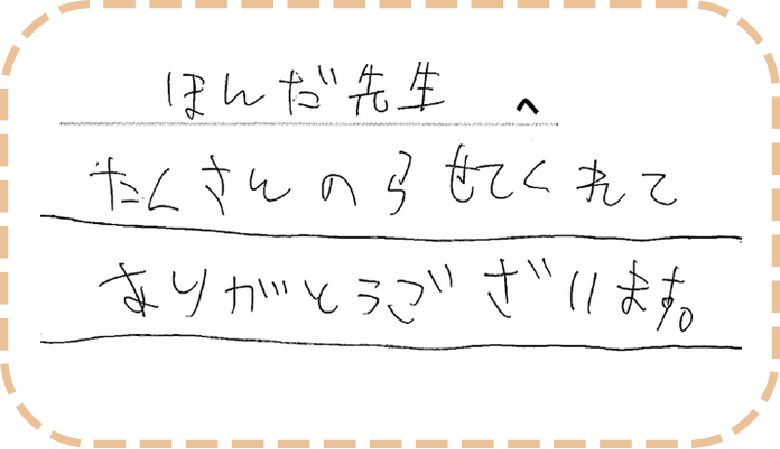 ほんだ先生 へ
たくさんのらせてくれて
ありがとうございます。